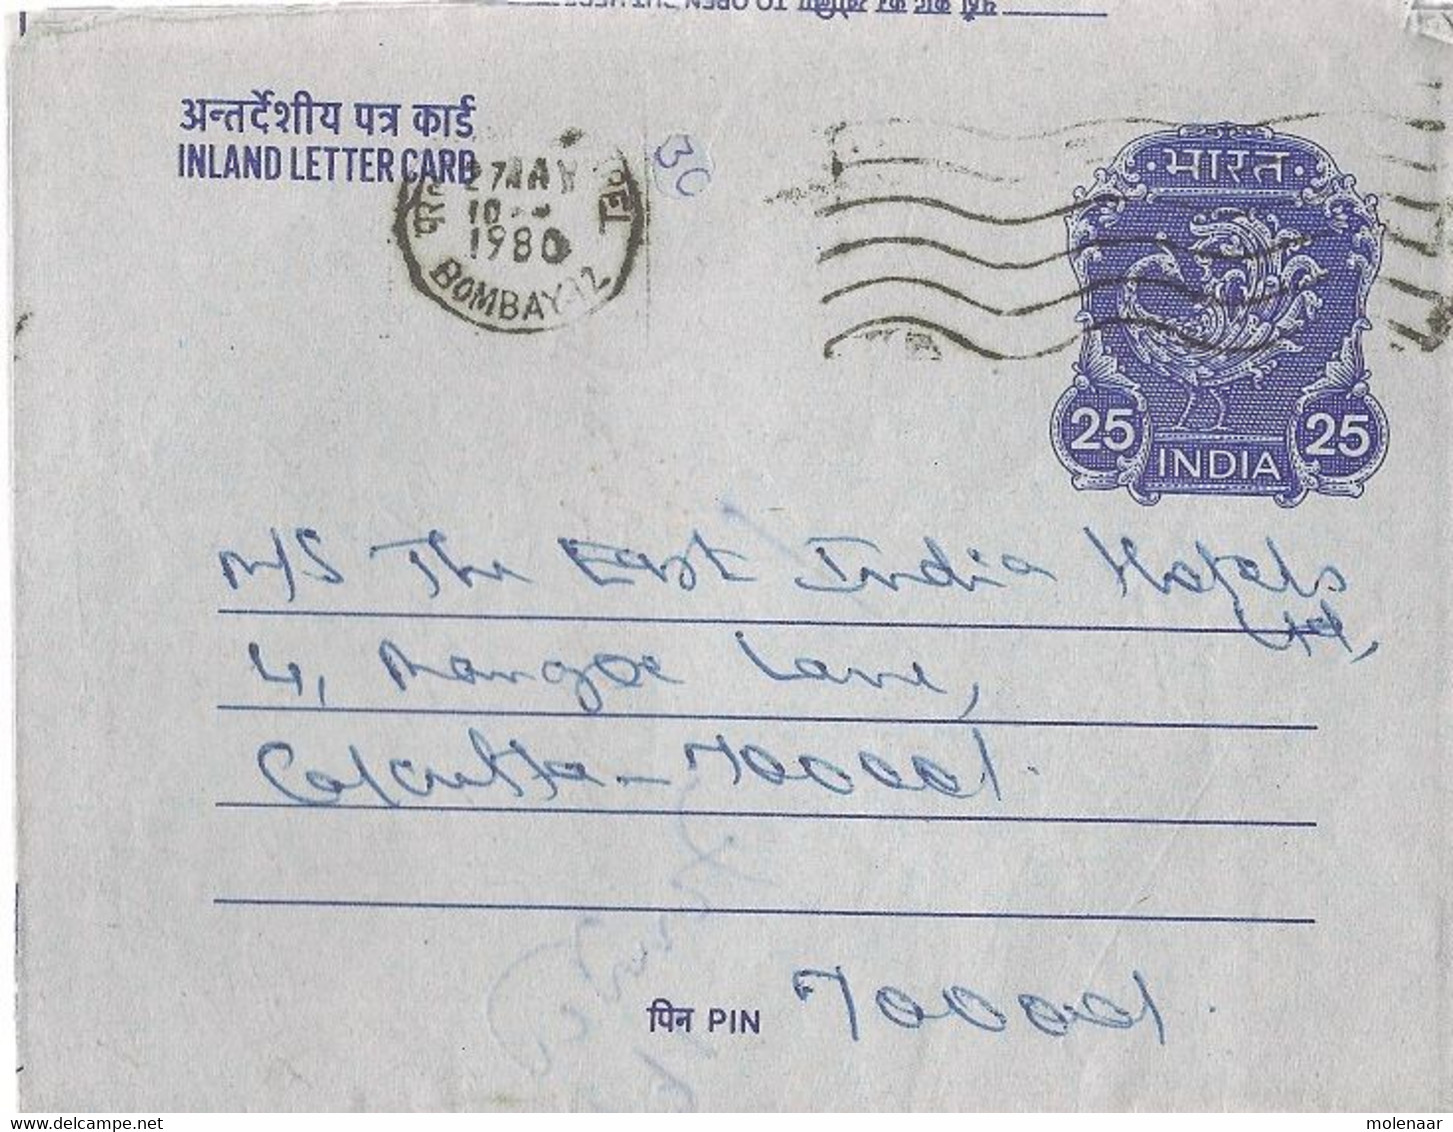 काट कर खोलिए TO OPEN CUT HERE
अन्तर्देशीय पत्र कार्ड
INLAND LETTER CARD
27 MAY
1980
BOMBAY-12
30
भारत
25 25
INDIA
M/S The East India Hotels
Ltd,
4, Mangoe Lane,
Calcutta-700001.
पिन PIN 700001.
molenaar